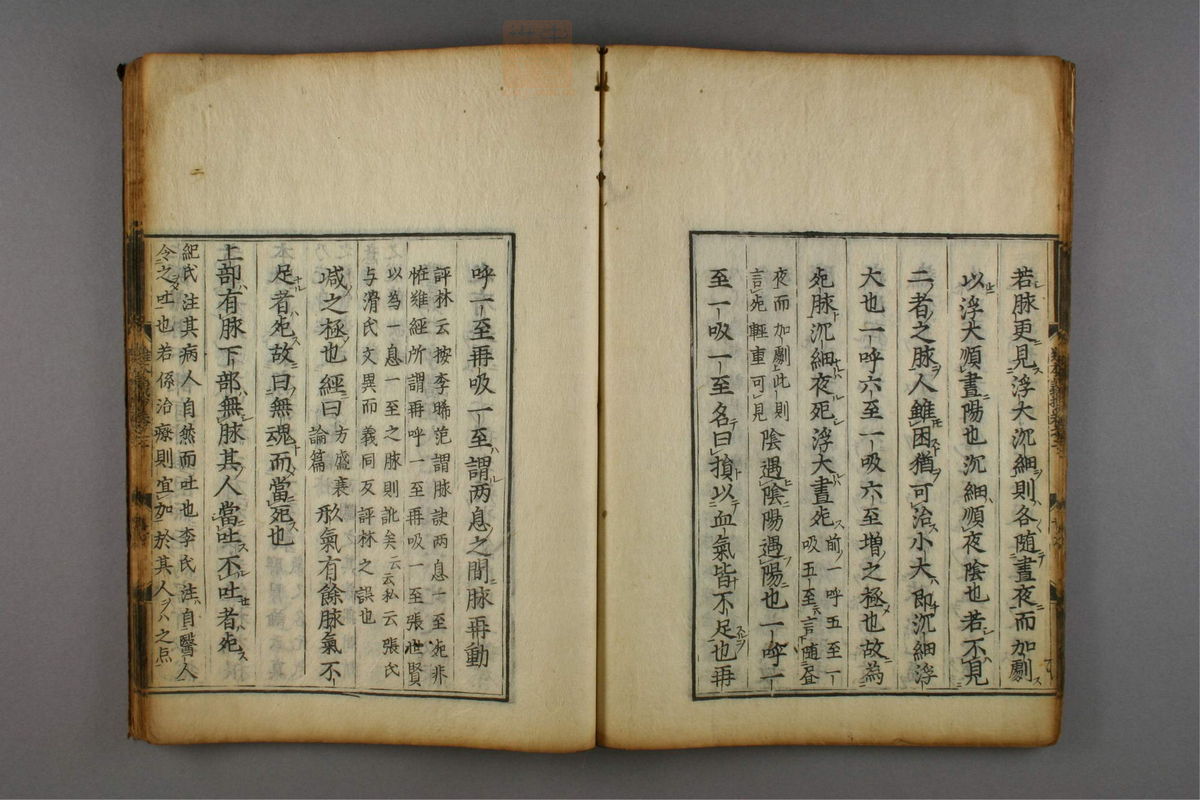 若脉更見浮大沉細則各随晝夜而加劇
以浮大順晝陽也沉細順夜陰也若不見
二者之脉人雖困猶可治小大即沉細浮
大也一呼六至一吸六至増之極也故為
死脉沉細夜死浮大晝死前一呼五至一
吸五至云言随昼
夜而加劇此則
言死輕重可見陰遇陰陽遇陽也一呼一
至一吸一至名曰損以血氣皆不足也再
呼一至再吸一至謂两息之間脉再動
評林云按李晞范謂脉訣两息一至死非
惟難經所謂再呼一至再吸一至張世賢
以為一息一至之脉則訛矣云云私云張氏
与滑氏文異而義同反評林之誤也
减之極也經曰方盛衰
論篇形氣有餘脉氣不
足者死故曰無魂而當死也
上部有脉下部無脉其人當吐不吐者死
紀氏注其病人自然而吐也李氏注自醫人
令之吐也若係治療則宜加於其人之点